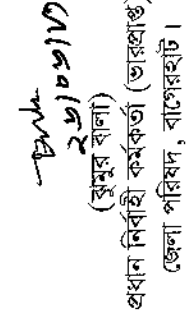 ২৬/০৬/২৫
(ঝুমুর বালা)
প্রধান নির্বাহী কর্মকর্তা (ভারপ্রাপ্ত)
জেলা পরিষদ, বাগেরহাট।